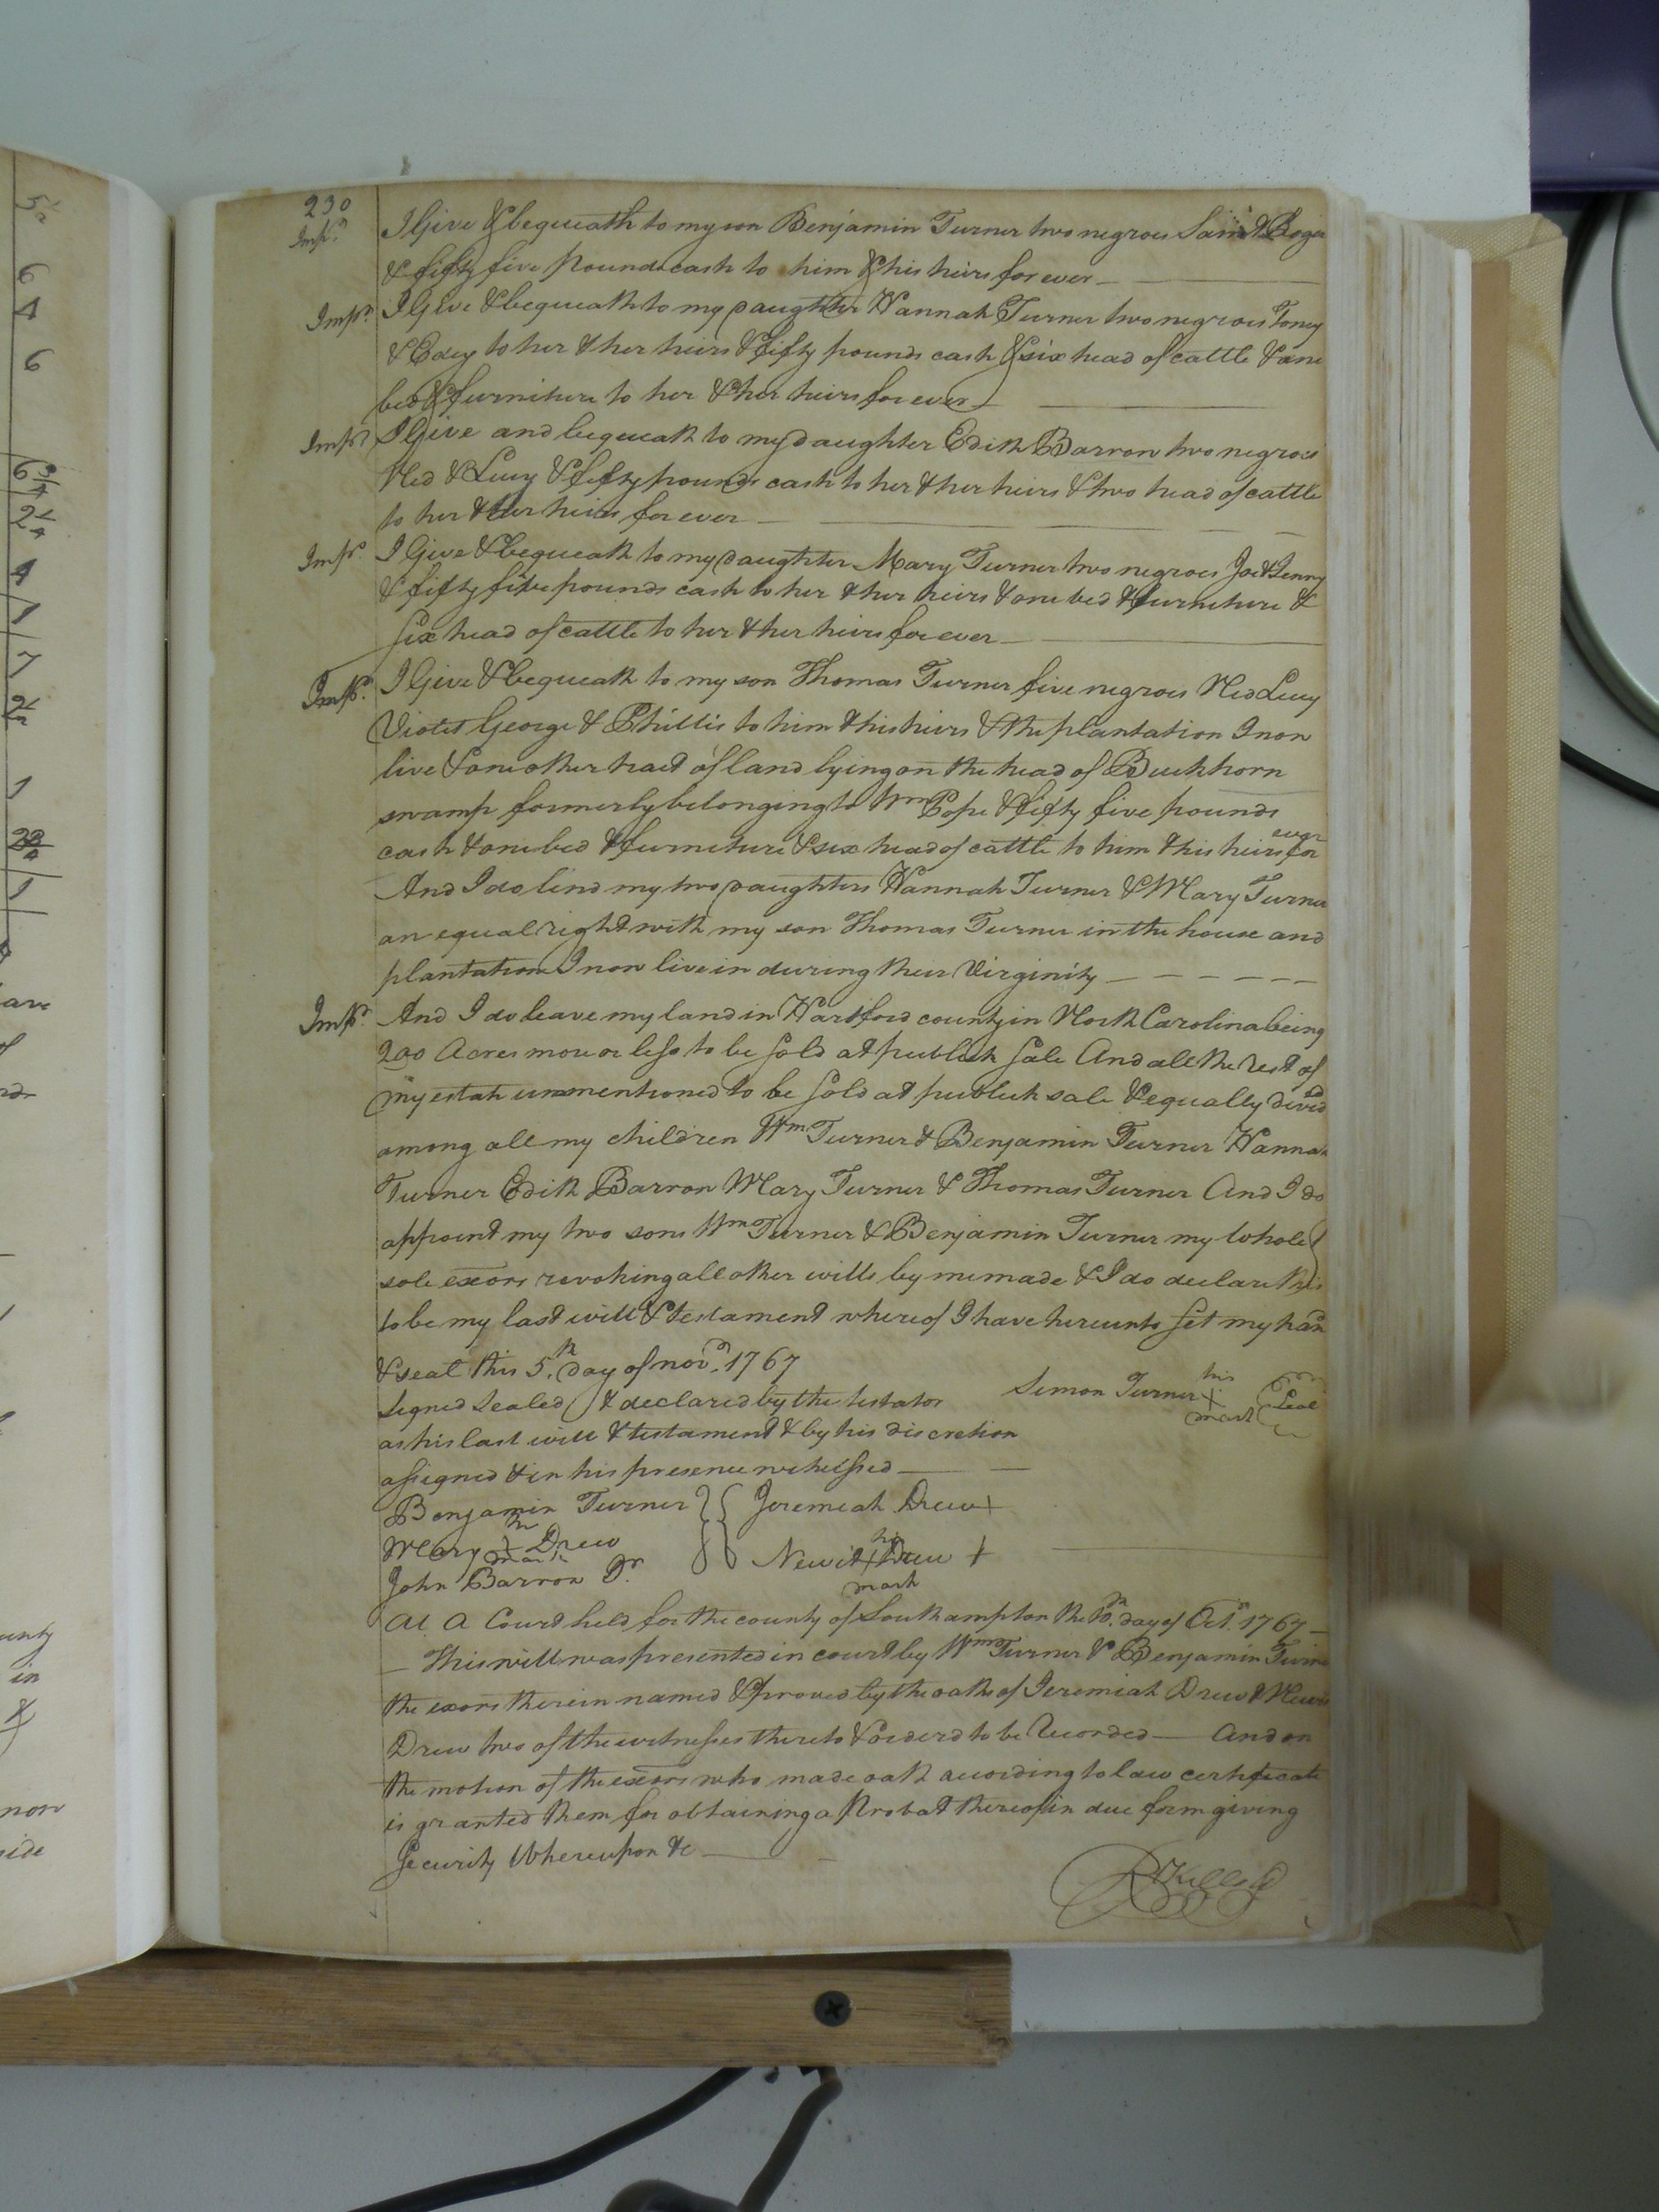 230
Imp.r I Give & bequeath to my son Benjamin Turner two negroes Sam & Roger
& fifty five pounds cash to him & his heirs for ever
Imp.r I Give & bequeath to my daughter Hannah Turner two negroes Toney
& Edey to her & her heirs & fifty pounds cash & six head of cattle & one
bed & furniture to her & her heirs for ever
Imp.r I Give and bequeath to my daughter Edith Barron two negroes
Ned & Lucy & fifty pounds cash to her & her heirs & two head of cattle
to her & her heirs for ever
Imp.r I Give & bequeath to my daughter Mary Turner two negroes Joe & Jenny
& fifty five pounds cash to her & her heirs & one bed & furniture &
six head of cattle to her & her heirs for ever
Imp.r I Give & bequeath to my son Thomas Turner five negroes Ned Lucy
Violet George & Phillis to him & his heirs & the plantation I now
live & one other tract of land lying on the head of Buckhorn
swamp formerly belonging to Wm Pope & fifty five pounds
cash & one bed & furniture & six head of cattle to him & his heirs for ever
And I do lend my two daughters Hannah Turner & Mary Turner
an equal right with my son Thomas Turner in the house and
plantation I now live in during their Virginity
Imp.r And I do leave my land in Hartford county in North Carolina being
200 Acres more or less to be sold at publick sale And all the rest of
my estate unmentioned to be sold at publick sale & equally divid.ed
among all my children Wm Turner & Benjamin Turner Hannah
Turner Edith Barron Mary Turner & Thomas Turner And I do
appoint my two sons Wm Turner & Benjamin Turner my whole &
sole exors revoking all other wills by me made & I do declare this
to be my last will & testament whereof I have hereunto set my hand
& seal this 5.th day of nov.r 1767
Signed Sealed & declared by the testator Simon Turner his + mark Seal
as his last will & testament & by his discretion
assigned & in his presence witnessed
Benjamin Turner Jeremiah Drew +
Mary + Drew
mark Newit his + Drew +
mark
John Barron
At A Court held for the county of Southampton the day of Oct.r 1767
This will was presented in court by Wm Turner & Benjamin Turner
the exors therein named & proved by the oaths of Jeremiah Drew & Newit
Drew two of the witnesses thereto & orderd to be Recorded And on
the motion of the exors who made oath according to law certificate
is granted them for obtaining a Probat thereof in due form giving
Security Whereupon &c